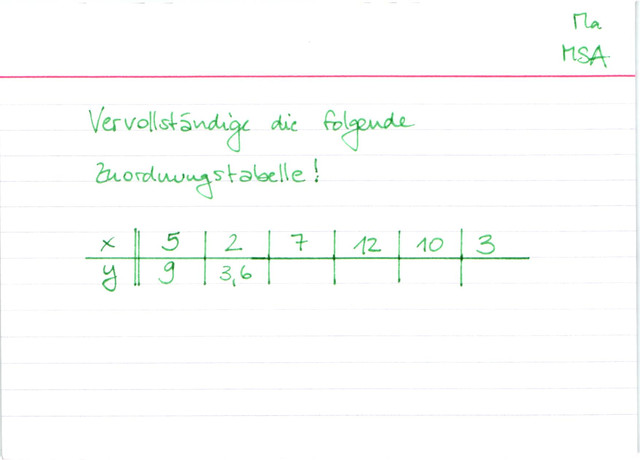 Ma
MSA
Vervollständige die folgende
Zuordnungstabelle!
x 5 2 7 12 10 3
y 9 3,6